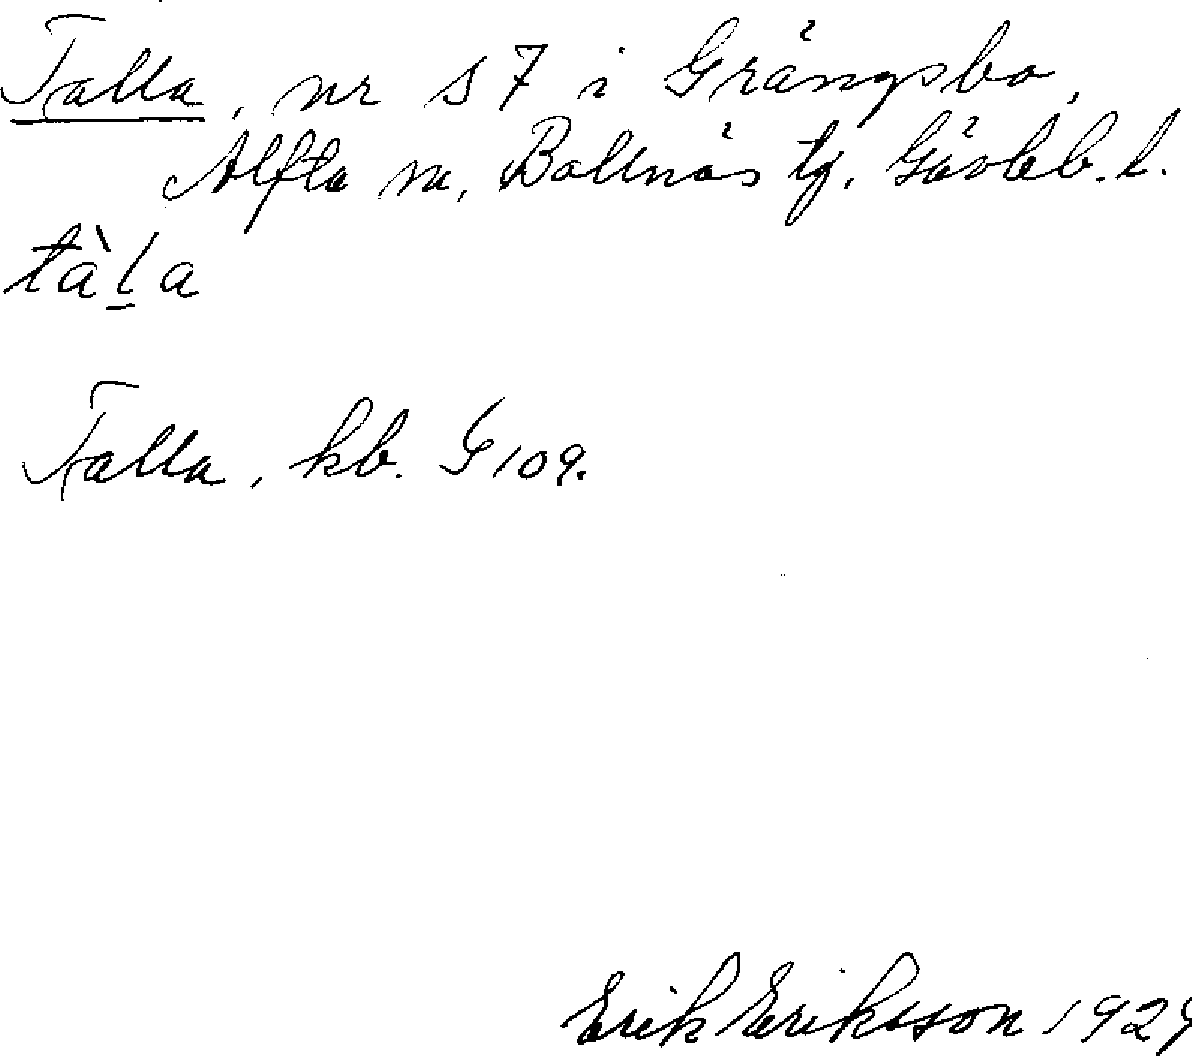 Talla, nr 57 i Grängsbo,
Alfta sn, Bollnäs tg. Gävleb. l.
tàḻa
Talla, kb. G 109.
Erik Eriksson 1929